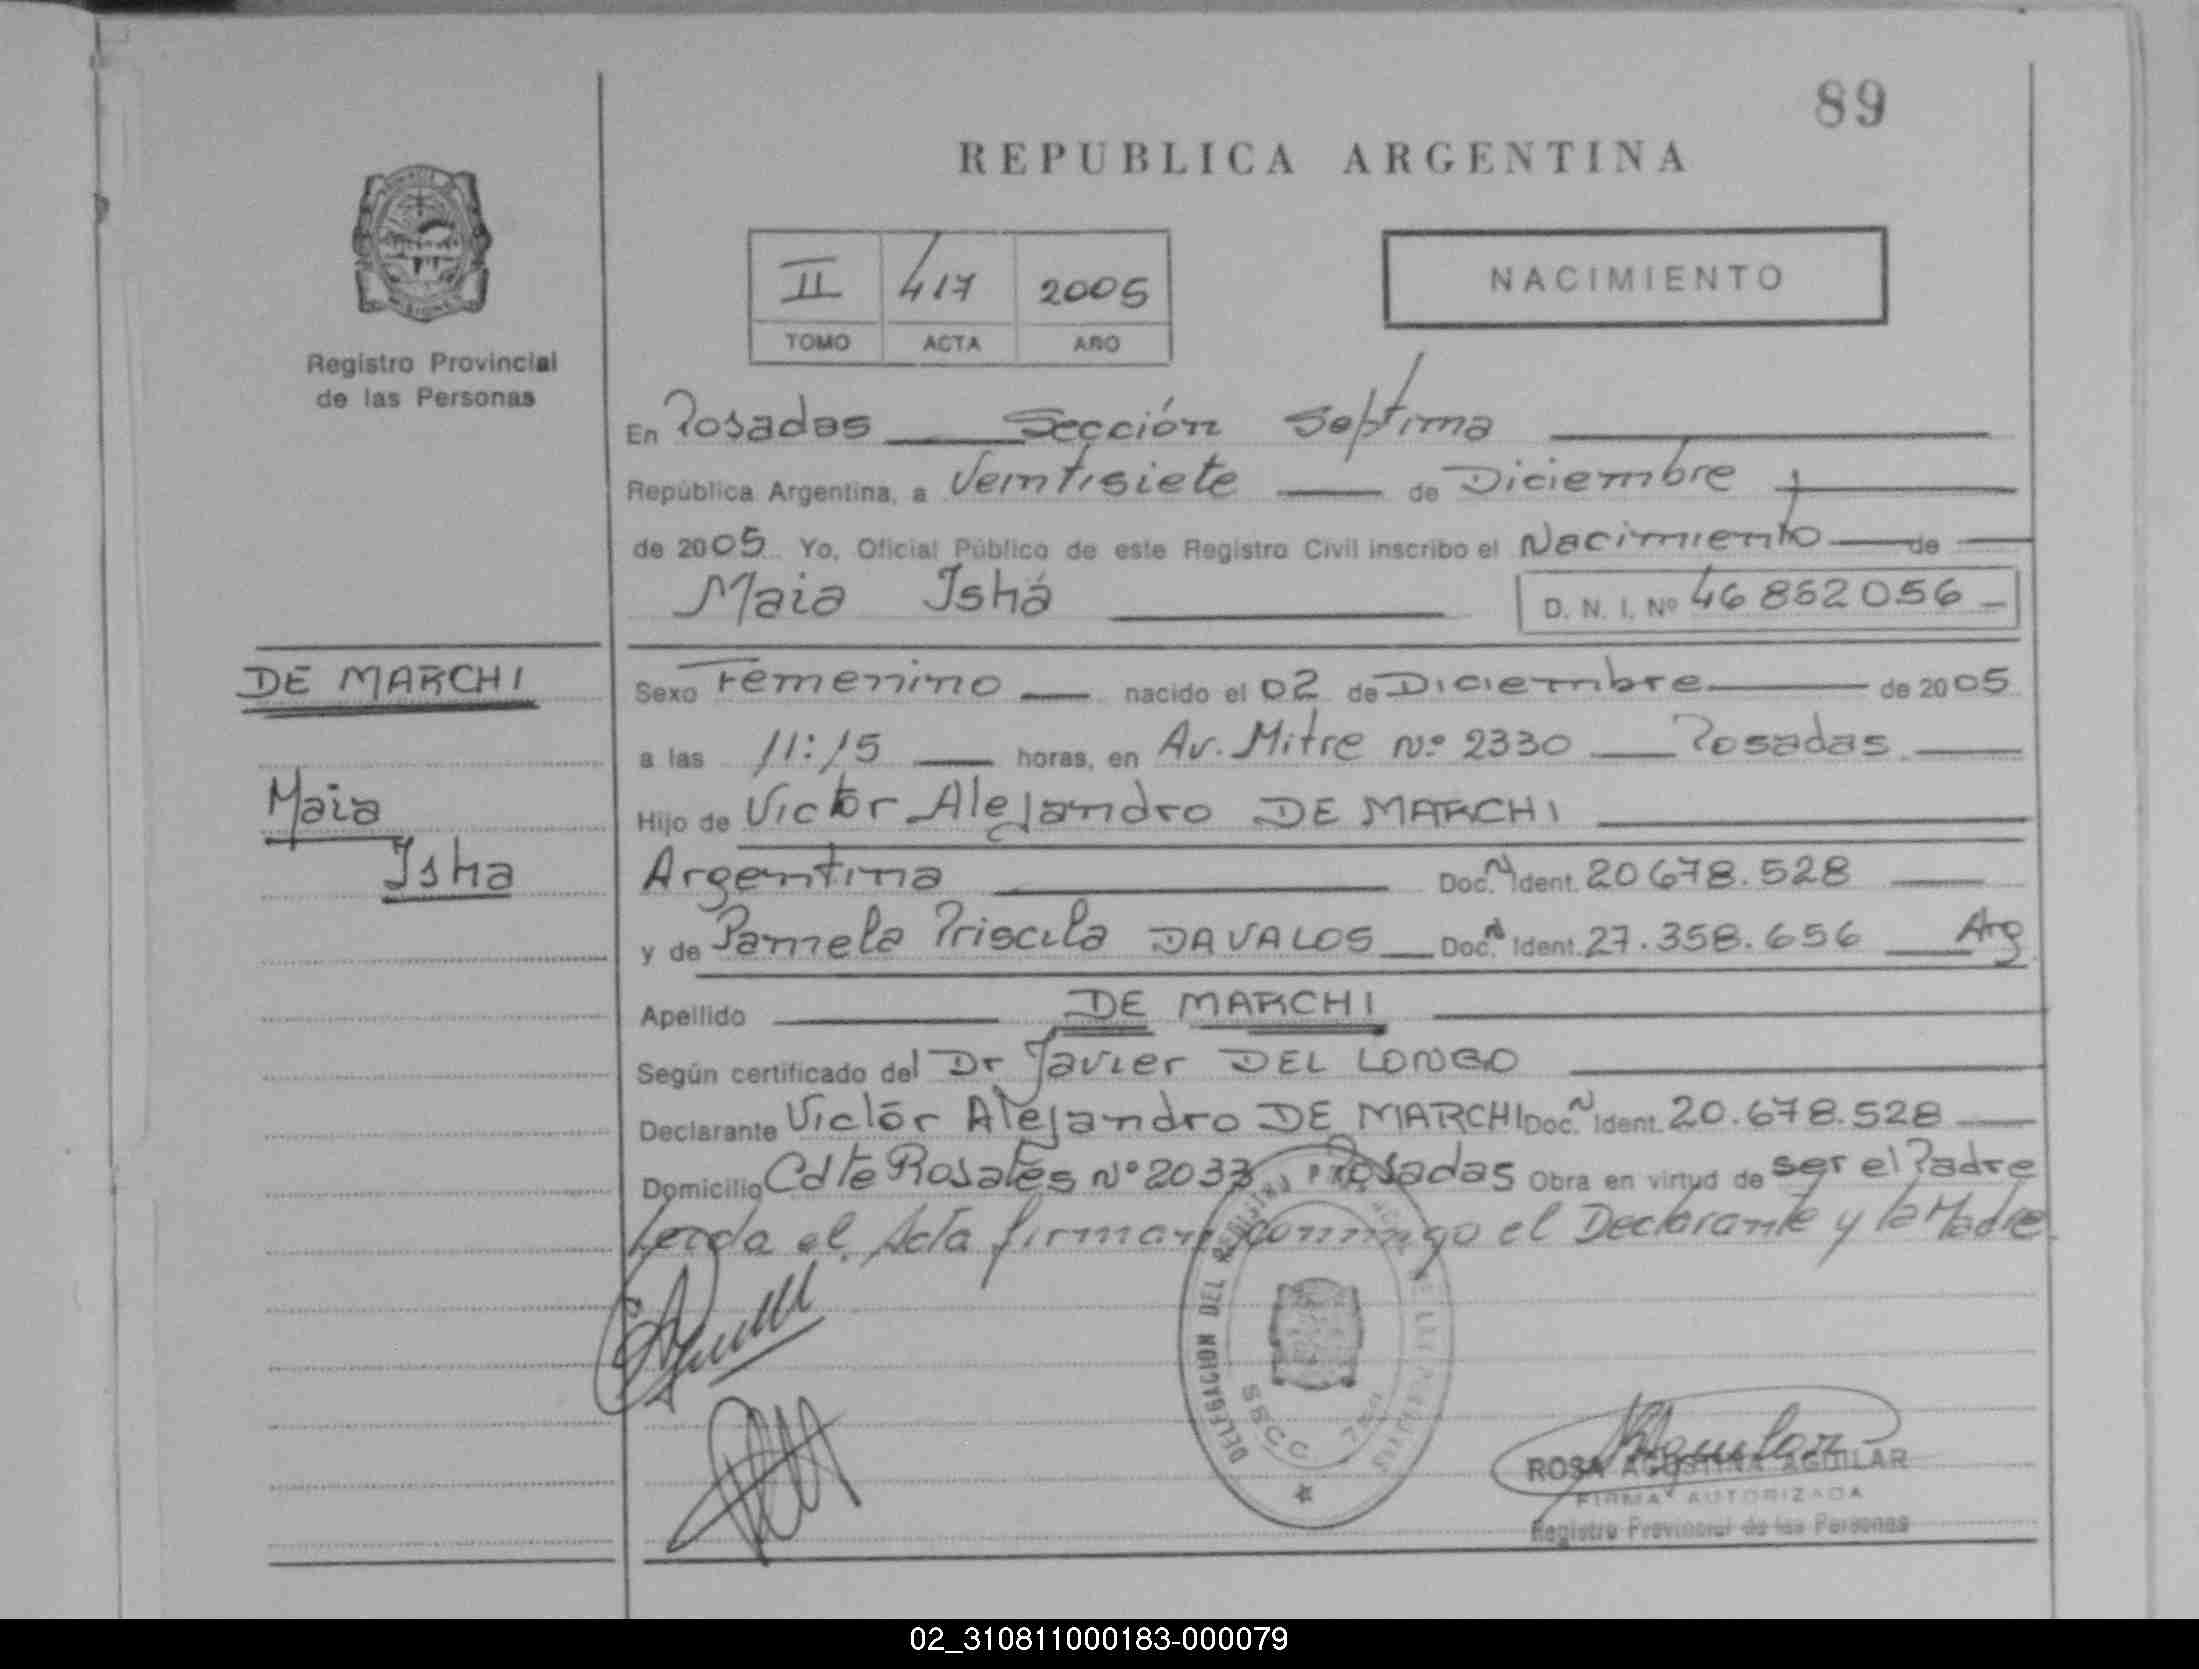 89
REPUBLICA ARGENTINA
II 417 2005
TOMO ACTA AÑO
NACIMIENTO
Registro Provincial
de las Personas
En Posadas Sección Septima
República Argentina, a Veintisiete de Diciembre
de 2005 Yo, Oficial Público de este Registro Civil inscribo el Nacimiento de
Maia Ishá D. N. I. Nº 46852056
DE MARCHI
Maia
Isha
Sexo Femenino nacido el 02 de Diciembre de 2005
a las 11:15 horas, en Av. Mitre Nº 2330 Posadas
Hijo de Victor Alejandro DE MARCHI
Argentina Doc. N Ident. 20678.528
y de Pamela Priscila DAVALOS Doc. N Ident. 27.358.656 Arg
Apellido DE MARCHI
Según certificado del Dr Javier DEL LONGO
Declarante Victor Alejandro DE MARCHI Doc. N Ident. 20.678.528
Domicilio Cdte Rosales Nº 2033 Posadas Obra en virtud de ser el Padre
Leida el Acta firman conmigo el Declarante y la Madre
DELEGACION DEL REGISTRO
SSCC
ROSA AGUSTINA AGUILAR
FIRMA AUTORIZADA
Registro Provincial de las Personas
02_310811000183-000079